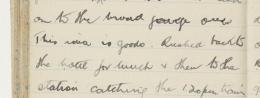 on to the broad gauge ones
This line is goods. Rushed back to
the hotel for lunch & then to the
station catching the 1.20 pm train